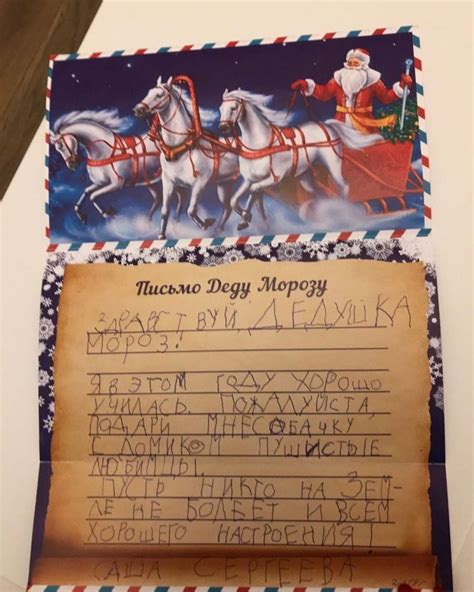 Письмо Деду Морозу
ЗДРАВСТВУЙ, ДЕДУШКА
МОРОЗ!
Я В ЭТОМ ГОДУ ХОРОШО
УЧИЛАСЬ. ПОЖАЛУЙСТА,
ПОДАРИ МНЕ СОБАЧКУ
С ДОМИКОМ ПУШИСТЫЕ
ЛЮБИМЦЫ.
ПУСТЬ НИКТО НА ЗЕМ-
ЛЕ НЕ БОЛЕЕТ И ВСЕМ
ХОРОШЕГО НАСТРОЕНИЯ!
САША СЕРГЕЕВА